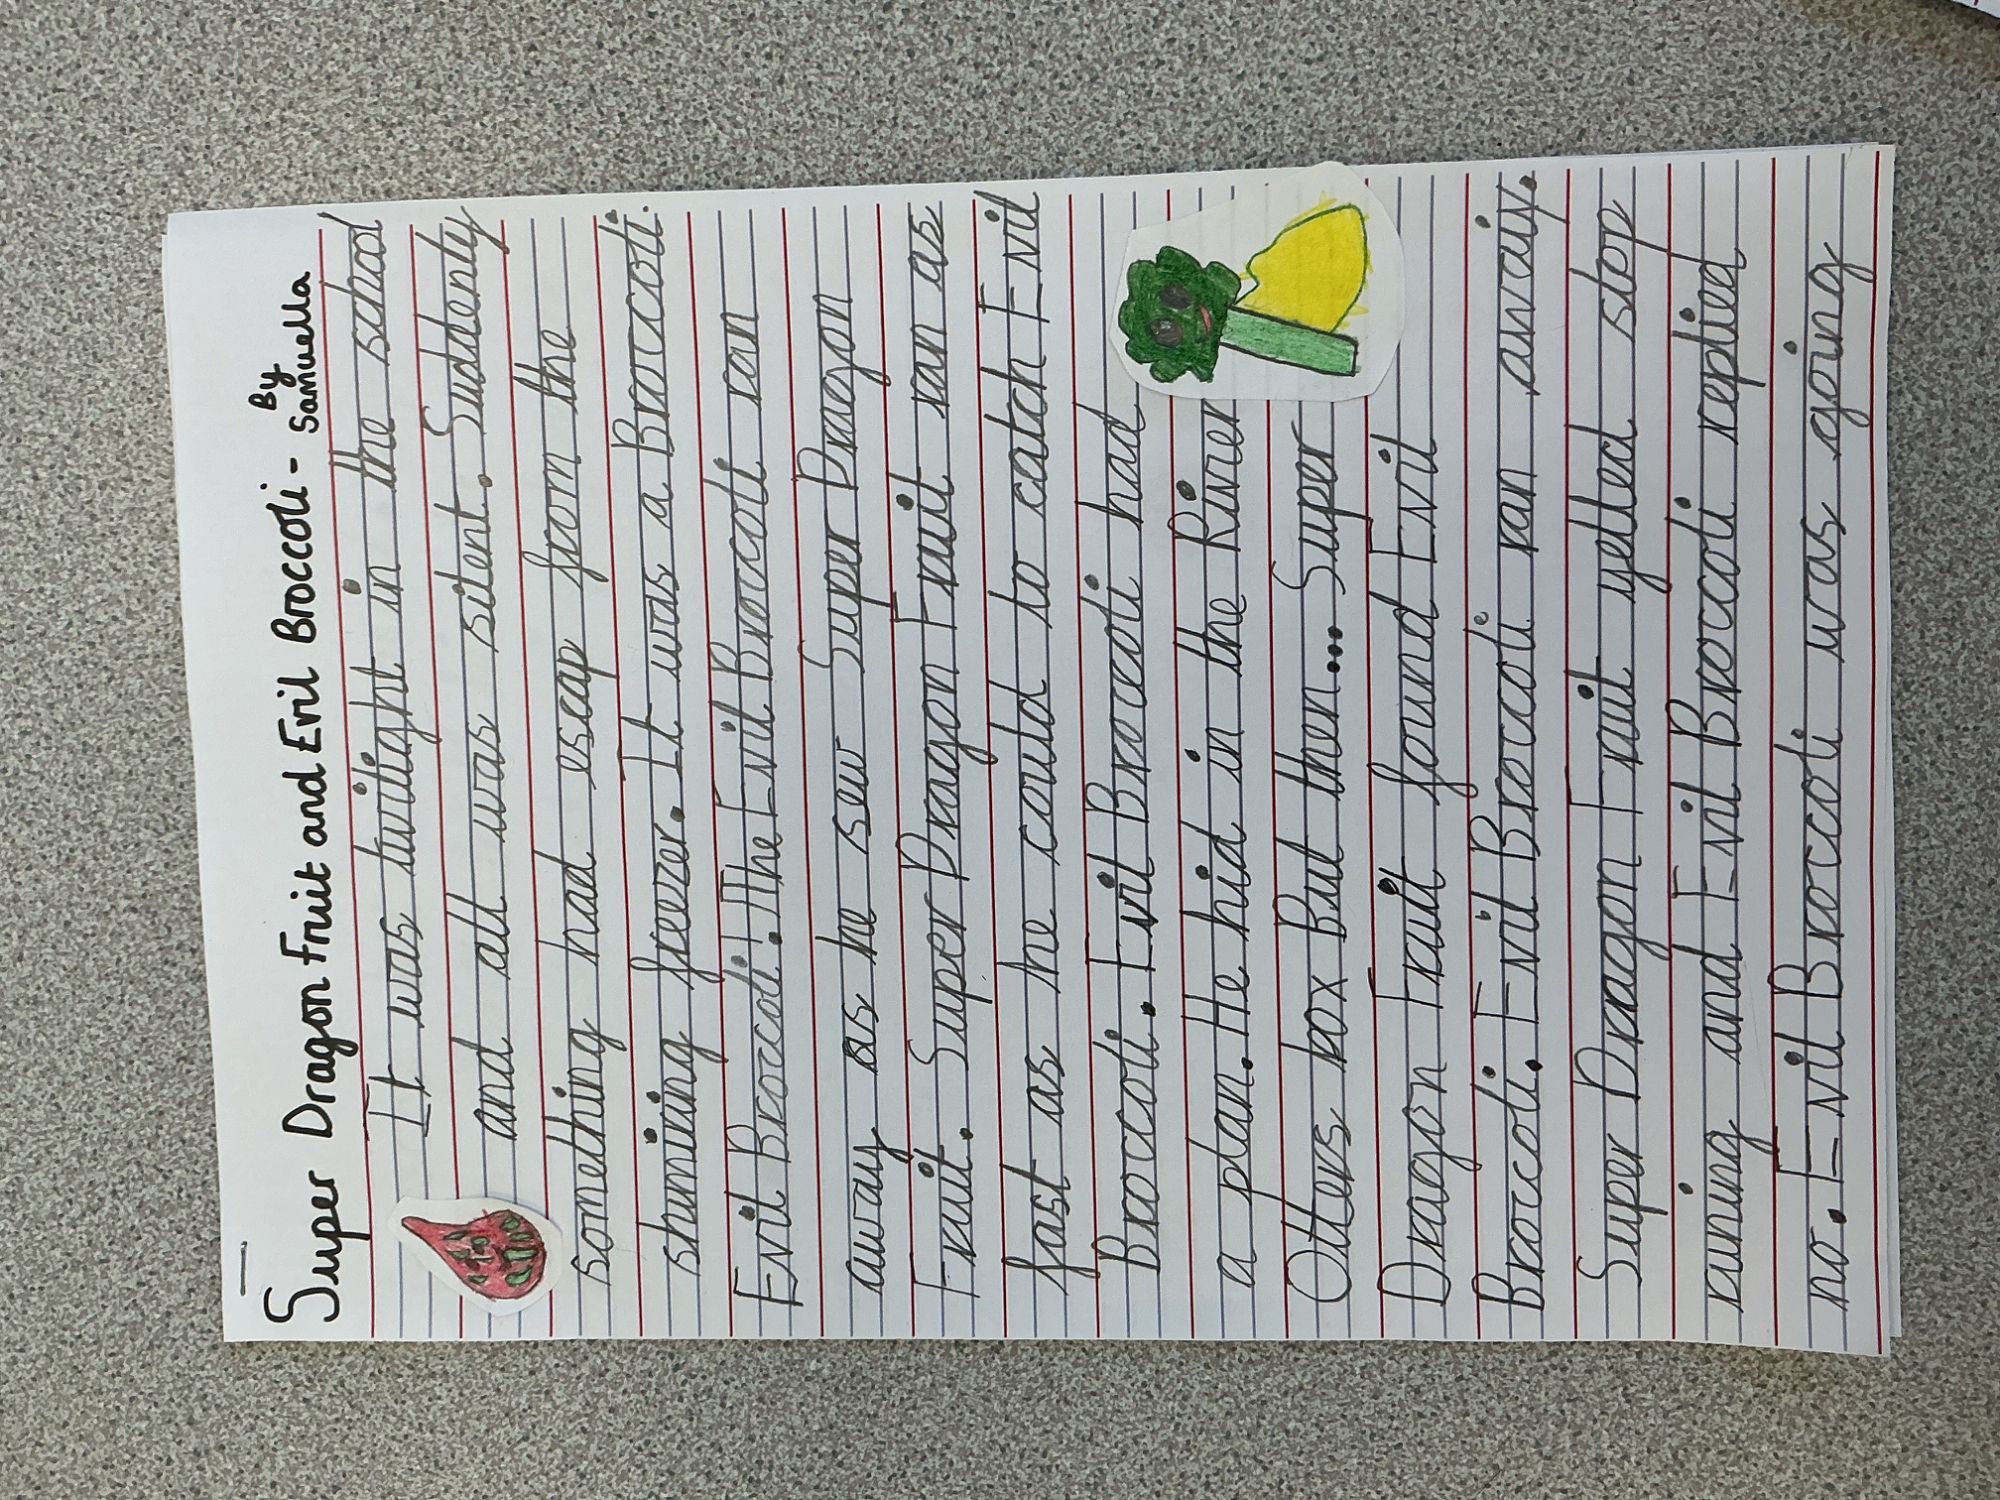 Super Dragon Fruit and Evil Broccoli - By Samuella
It was twilight in the school
and all was silent. Suddenly
something had escap from the
shinning freezer. It was a Broccoli.
Evil Broccoli! The Evil Broccoli ran
away as he sew Super Dragon
Fruit. Super Dragon Fruit ran as
fast as he could to catch Evil
Broccoli. Evil Broccoli had
a plan. He hid in the River
Otters box But then... Super
Dragon Fruit found Evil
Broccoli. Evil Broccoli ran away.
Super Dragon Fruit yelled stop
runing and Evil Broccoli replied
no. Evil Broccoli was going